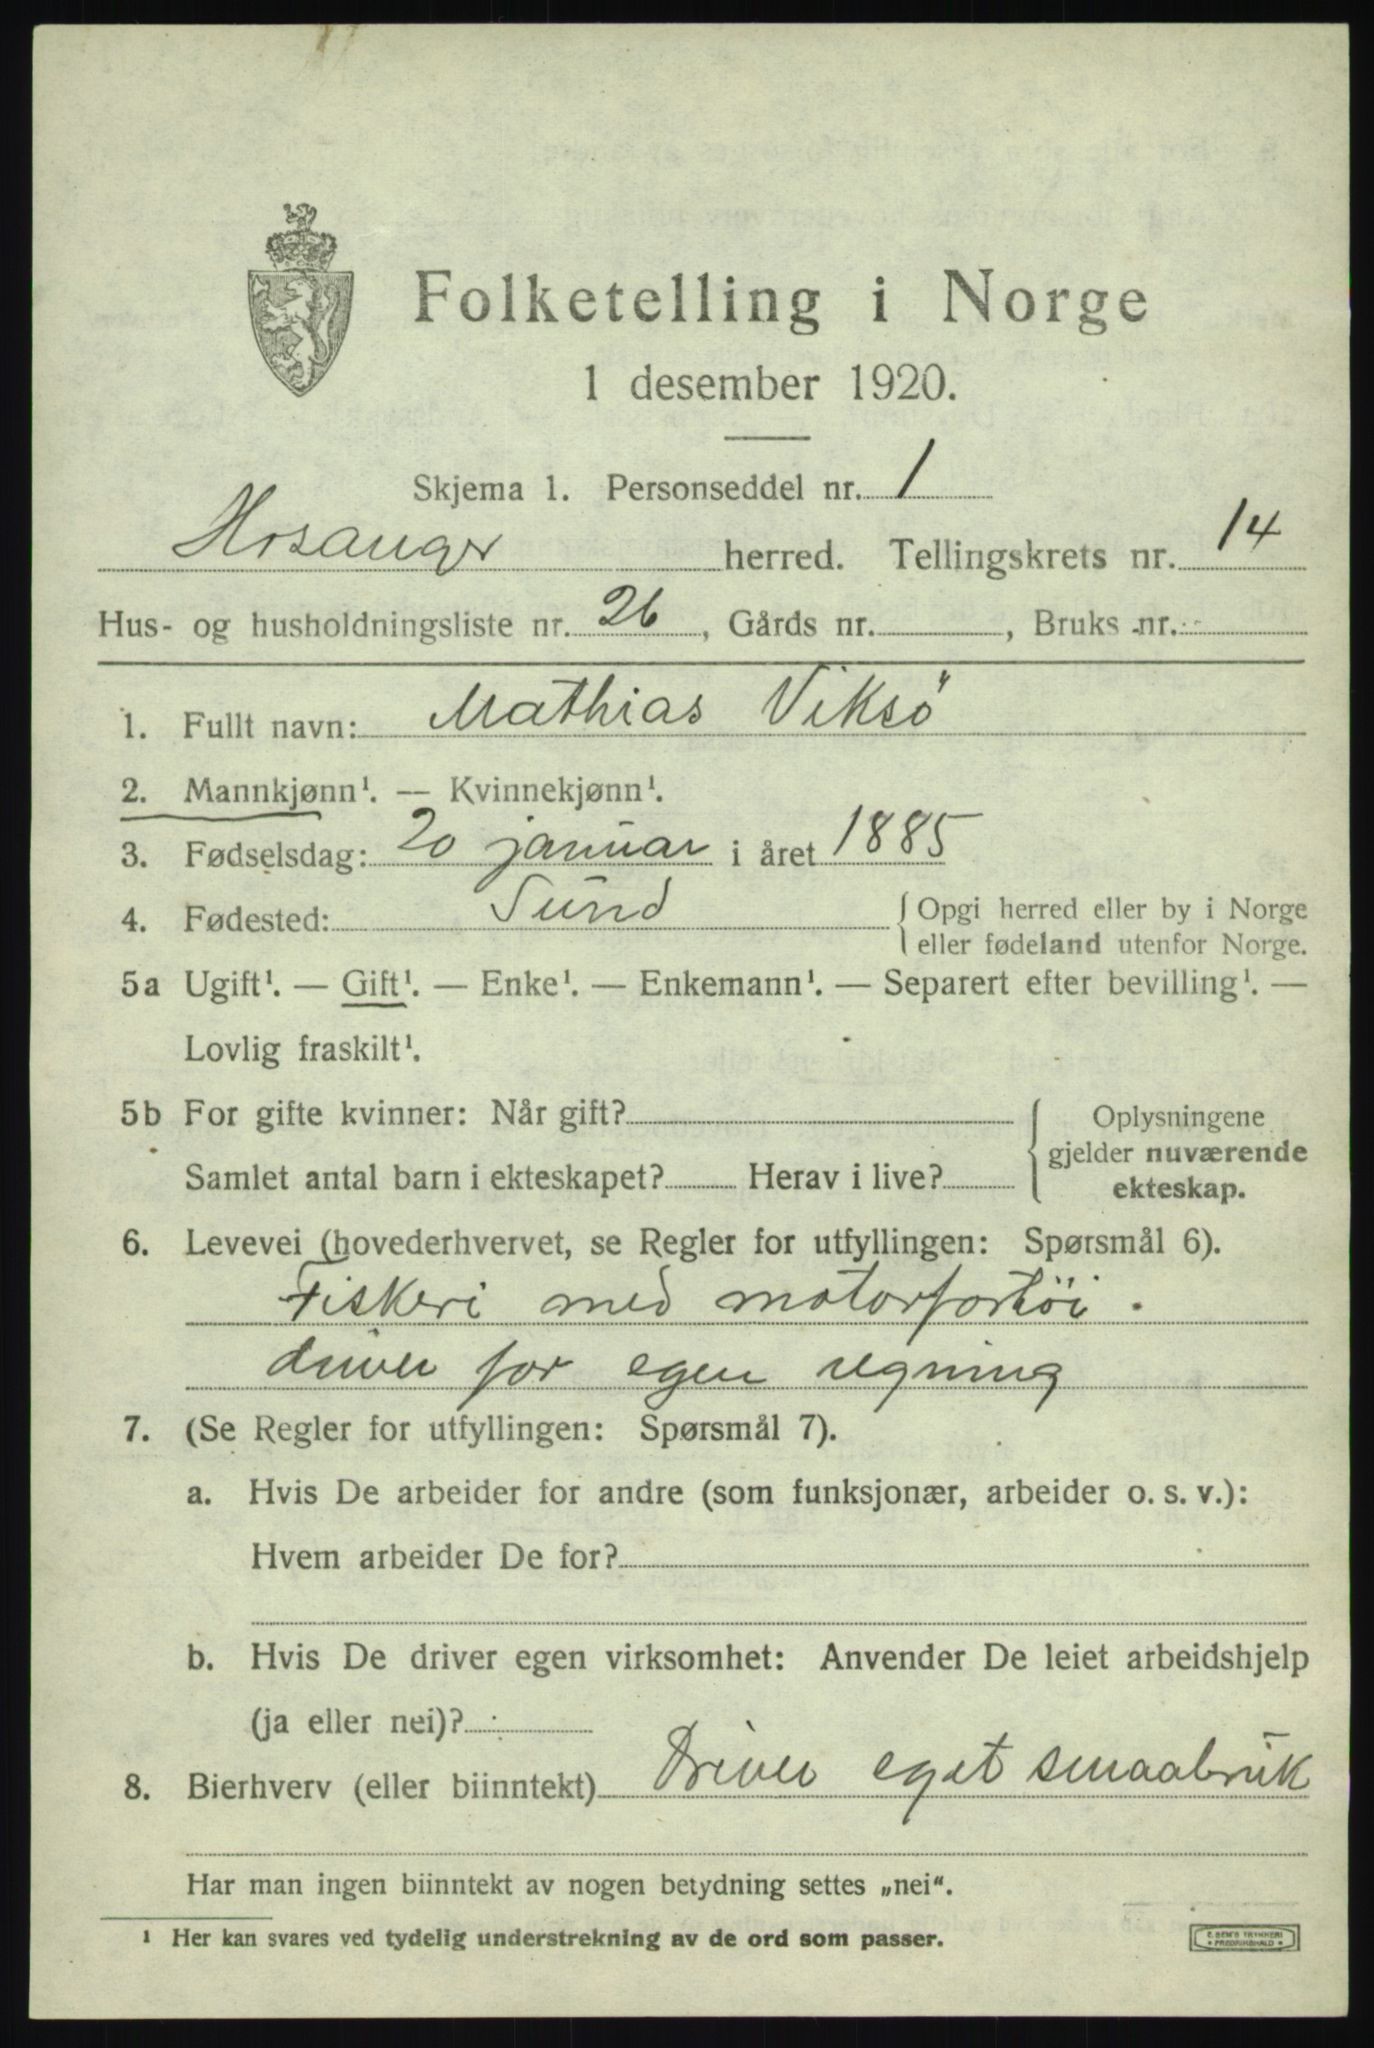 Folketelling i Norge
1 desember 1920.
Skjema 1. Personseddel nr. 1
Hosanger herred. Tellingskrets nr. 14
Hus- og husholdningsliste nr. 26, Gårds nr. , Bruks nr.
1. Fullt navn: Mathias Viksö
2. Mannkjønn¹. — Kvinnekjønn¹.
3. Fødselsdag: 20 januar i året 1885
4. Fødested: Sund { Opgi herred eller by i Norge
eller fødeland utenfor Norge.
5a Ugift¹. — Gift¹. — Enke¹. — Enkemann¹. — Separert efter bevilling¹. —
Lovlig fraskilt¹.
5b For gifte kvinner: Når gift? { Oplysningene
gjelder nuværende
Samlet antal barn i ekteskapet? Herav i live? ekteskap.
6. Levevei (hovederhvervet, se Regler for utfyllingen: Spørsmål 6).
Fiskeri med motorfartöi.
driver for egen regning
7. (Se Regler for utfyllingen: Spørsmål 7).
a. Hvis De arbeider for andre (som funksjonær, arbeider o. s. v.):
Hvem arbeider De for?
b. Hvis De driver egen virksomhet: Anvender De leiet arbeidshjelp
(ja eller nei)?
8. Bierhverv (eller biinntekt) Driver eget smaabruk
Har man ingen biinntekt av nogen betydning settes „nei“.
¹ Her kan svares ved tydelig understrekning av de ord som passer.
TRYKKERI
FREDRIKSHALD